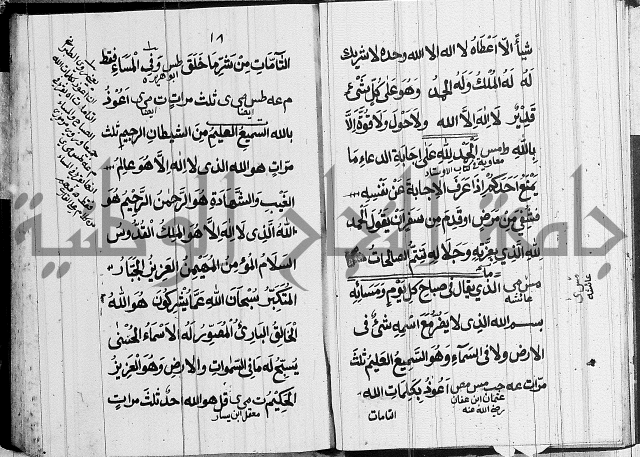 شيأ الا اعطاه لا اله الا الله وحده لا شريك
له له الملك وله الحمد وهو على كل شئ
قدير لا اله الا الله ولا حول ولا قوة الا
بالله طس مس الحمد لله على اجابة الدعاء ما
يمنع احدكم اذا عرف الاجابة عن نفسه
فشفى من مرض او قدم من سفر ان يقول الحمد
لله الذى بعزته وجلاله تتم الصالحات
مس مى الذى يقال فى صباح كل يوم ومسائه
عائشه
بسم الله الذى لا يضر مع اسمه شئ فى
الارض ولا فى السماء وهو السميع العليم ثلث
مرات عه حب مس مص اعوذ بكلمات الله
عثمان ابن عفان
رضى الله عنه
التامات
مس ى
عائشه
١٨
التامات من شر ما خلق طس وفى المساء فقط
ابو هريره
م عه طس مى ى ثلث مرات ت مى اعوذ
ايضا ايضا
بالله السميع العليم من الشيطان الرجيم ثلث
مرات هو الله الذى لا اله الا هو عالم
الغيب والشهادة هو الرحمن الرحيم هو
الله الذى لا اله الا هو الملك القدوس
السلام المؤمن المهيمن العزيز الجبار
المتكبر سبحان الله عما يشركون هو الله
الخالق البارئ المصور له الاسماء الحسنى
يسبح له ما فى السموات والارض وهو العزيز
الحكيم ت مى قل هو الله احد ثلث مرات
معقل ابن يسار
جامعة النجاح الوطنية